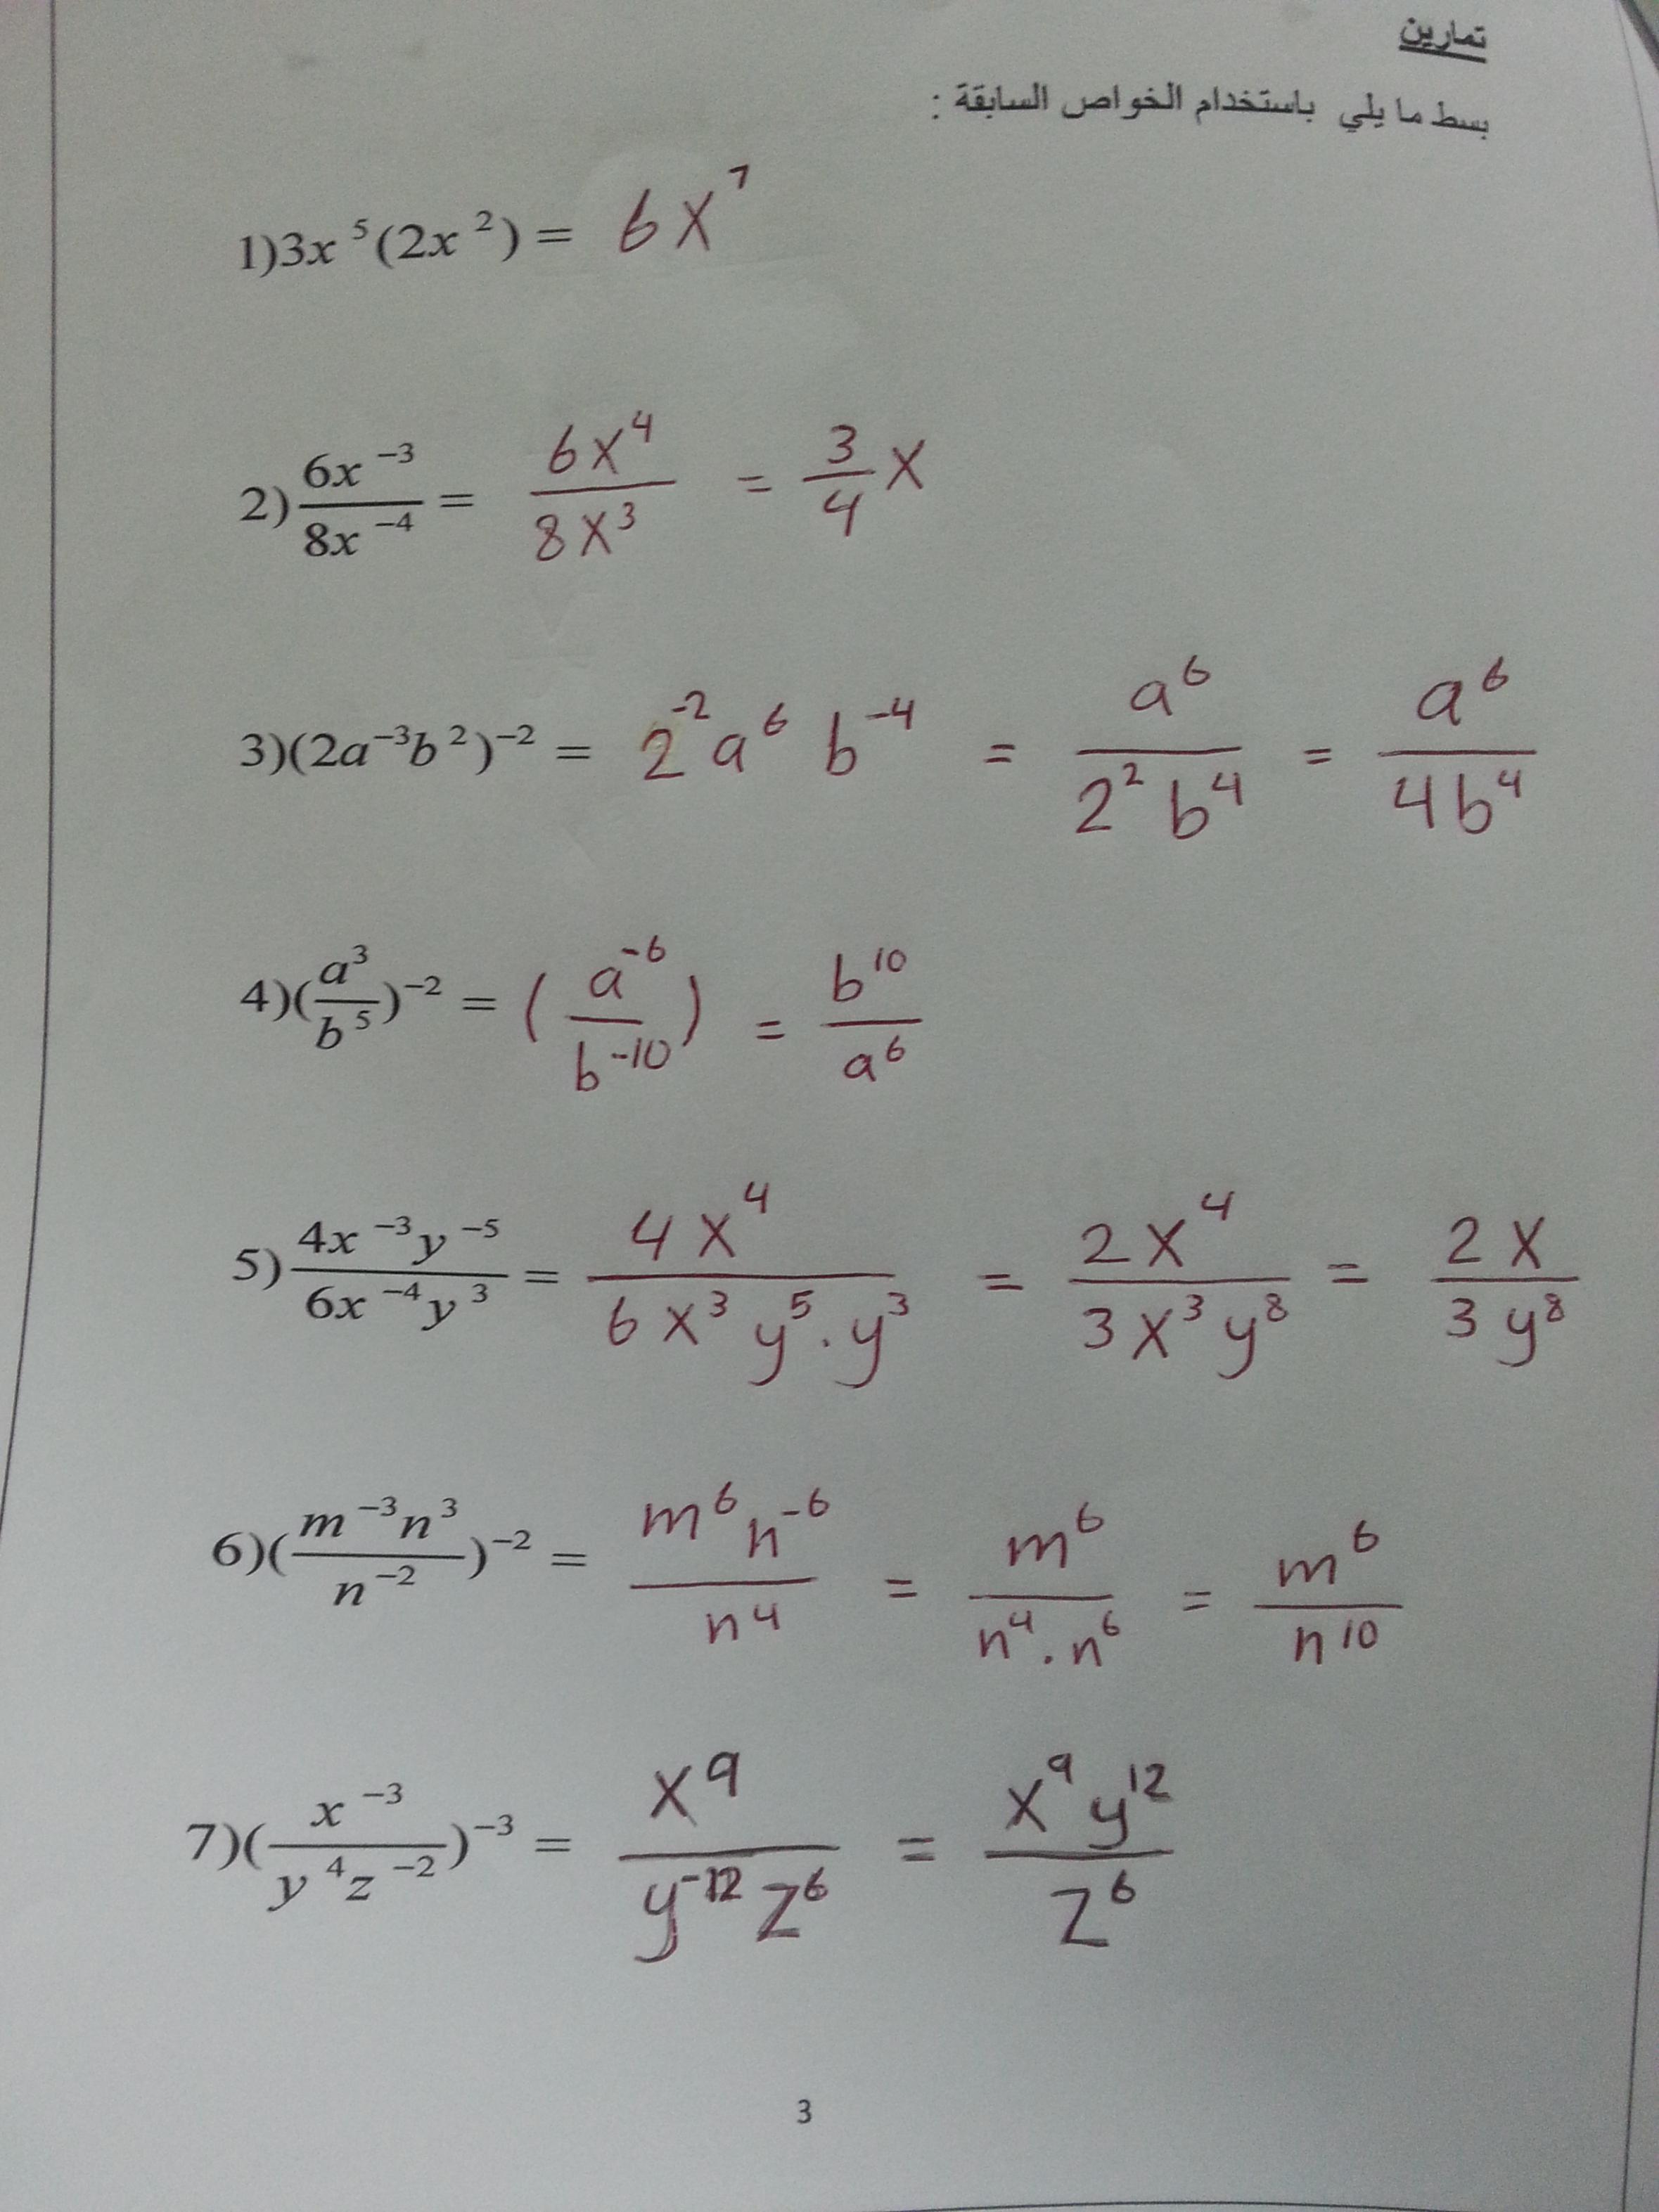 تمارين
بسط ما يلي باستخدام الخواص السابقة :
1)3x⁵(2x²) = 6x⁷
2) 6x⁻³/8x⁻⁴ = 6x⁴/8x³ = 3/4 x
3)(2a⁻³b²)⁻² = 2⁻²a⁶b⁻⁴ = a⁶/2²b⁴ = a⁶/4b⁴
4)(a³/b⁵)⁻² = (a⁻⁶/b⁻¹⁰) = b¹⁰/a⁶
5) 4x⁻³y⁻⁵/6x⁻⁴y³ = 4x⁴/6x³y⁵.y³ = 2x⁴/3x³y⁸ = 2x/3y⁸
6)(m⁻³n³/n⁻²)⁻² = m⁶n⁻⁶/n⁴ = m⁶/n⁴.n⁶ = m⁶/n¹⁰
7)(x⁻³/y⁴z⁻²)⁻³ = x⁹/y⁻¹²z⁶ = x⁹y¹²/z⁶
3